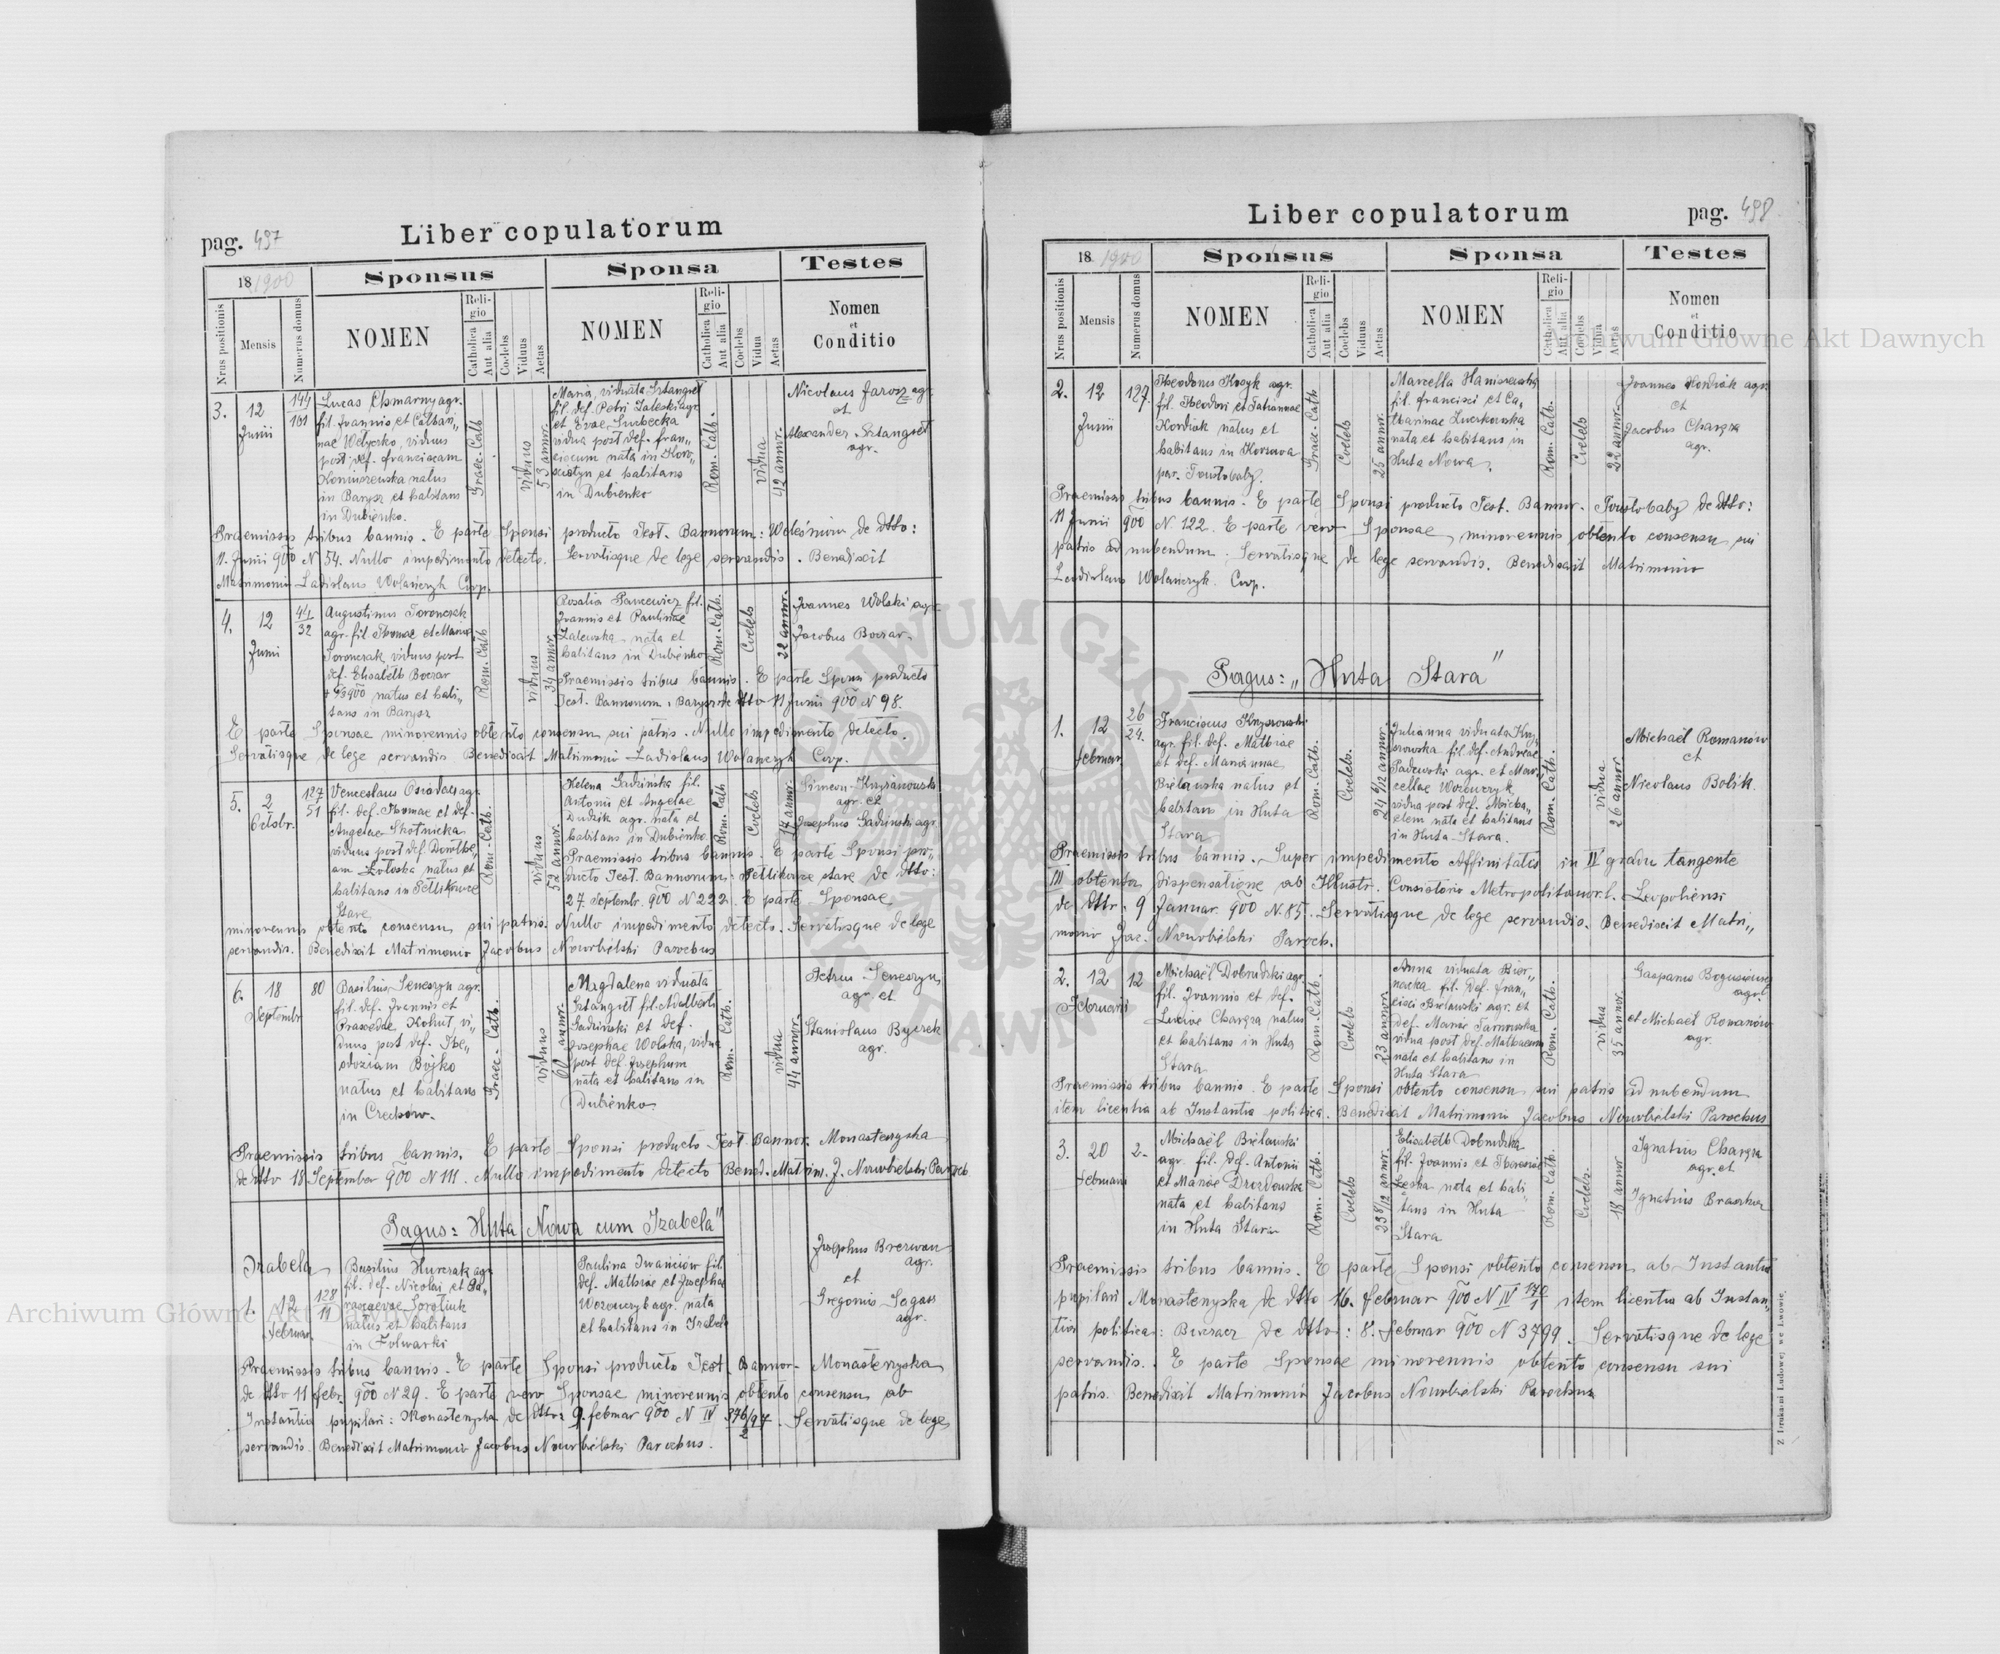 pag. 497
Liber copulatorum
18 1900
Sponsus
Sponsa
Testes
Nrus positionis
Mensis
Numerus domus
NOMEN
Religio
Catholica
Aut alia
Coelebs
Viduus
Aetas
NOMEN
Religio
Catholica
Aut alia
Coelebs
Vidua
Aetas
Nomen
et
Conditio
3.
12
Junii
144
161
Lucas Chmarny agr.
fil. Joannis et Cathari„
nae Welyczko, viduus
post def. Franciscam
natus
in Barysz et habitans
in Dubienko.
Graec. Cath
viduus
53 annor.
Maria, viduata Sztangret
fil. def. Petri Zaleski agr.
et Evae
vidua post def. Fran„
ciscum nata in Koro„
sciatyn et habitans
in Dubienko
Rom. Cath.
vidua
42 annor.
Nicolaus Jarosz agr.
et
Alexander Sztangret
agr.
Praemissis tribus bannis. E parte Sponsi producto Test. Bannorum: Woleśniów de dtto:
11. Junii 900 N 54. Nullo impedimento detecto. Servatisque de lege servandis. Benedixit
Matrimonio Ladislaus Wolańczyk Coop.
4.
12
Junii
44
32
Augustinus Toronczak
agr. fil Thomae et Mariae
Toronczak, viduus post
def. Elisabeth Boczar
natus et habi„
tans in Barysz
Rom. Cath
viduus
34 annor.
Rosalia Pancewicz fil.
Joannis et Paulinae
Zalewska nata et
habitans in Dubienko
Rom. Cath.
Coelebs
22 annor.
Joannes Wolski agr.
Jacobus Boczar.
Praemissis tribus bannis. E parte Sponsi producto
Test. Bannorum: Barysz de dtto 11 Junii 900 N 98.
E parte Sponsae minorennis obtento consensu sui patris. Nullo impedimento detecto.
Servatisque de lege servandis Benedixit Matrimonio Ladislaus Wolańczyk Coop.
5.
2
Octobr.
127
51
Venceslaus Osiadacz agr.
fil. def. Thomae et def.
Angelae Skotnicka
viduus post def. Dorothe„
am natus et
habitans in Petlikowce
Stare
Rom. Cath.
viduus
52 annor.
Helena Gadzińska fil.
Antonii et Angelae
Dudzik agr. nata et
habitans in Dubienko.
Rom. Cath
Coelebs
17 annor.
Simeon Krzyżanowski
agr. et
Josephus Gadzinski agr.
Praemissis tribus bannis. E parte Sponsi pro„
ducto Test. Bannorum: Petlikowce stare de dtto:
27. Septembr. 900 N 222. E parte Sponsae
minorennis obtento consensu sui patris. Nullo impedimento detecto. Servatisque de lege
servandis. Benedixit Matrimonio Jacobus Nowobielski Parochus
6.
18
Septembr
80
Basilius Seneszyn agr.
fil. def. Joannis et
Praxedae Kohut, vi„
duus post def. The„
odoziam Bojko
natus et habitans
in Czechów.
Graec. Cath.
viduus
60 annor.
Magdalena viduata
Sztangret fil. Adalberti
Gadziński et def.
Josephae Wolska, vidua
post def. Josephum
nata et habitans in
Dubienko
Rom. Cath.
vidua
44 annor.
Petrus Seneszyn
agr. et
Stanislaus Byczek
agr.
Praemissis tribus bannis. E parte Sponsi producto Test. Bannor. Monasterzyska
de dtto 18 September 900 N 111. Nullo impedimento detecto Bened. Matrim. J. Nowobielski Paroch
Pagus: Huta Nowa cum Izabela"
Izabela
1.
12
Februar
128
11
Bazilius Hurczak agr.
fil. def. Nicolai et Pa„
rascaevae
natus et habitans
in Folwarki
Paulina Iwańciów fil.
def. Mathiae et Josephae
Woronczyk agr. nata
et habitans in Izabela
Josephus Brezwan
agr.
et
Gregorius Sagan
agr.
Praemissis tribus bannis. E parte Sponsi producto Test. Bannor. Monasterzyska
de dtto 11 febr. 900 N 29. E parte vero Sponsae minorennis obtento consensu ab
Instantia pupilari: Monasterzyska de dtto: 9. februar 900 N IV 376/97. Servatisque de lege
servandis. Benedixit Matrimonio Jacobus Nowobielski Parochus.
Liber copulatorum
pag. 498
18 1900
Sponsus
Sponsa
Testes
Nrus positionis
Mensis
Numerus domus
NOMEN
Religio
Catholica
Aut alia
Coelebs
Viduus
Aetas
NOMEN
Religio
Catholica
Aut alia
Coelebs
Vidua
Aetas
Nomen
et
Conditio
2.
12
Junii
127.
Theodorus Kosyk agr.
fil. Theodori et Tatiannae
Kordiak natus et
habitans in Korzowa
par. Toustobaby.
Graec. Cath
Coelebs
25 annor.
Marcella Haniszewska
fil. Francisci et Ca„
tharinae Zuczkowska
nata et habitans in
Huta Nowa.
Rom. Cath.
Coelebs
22 annor.
Joannes Kordiak agr.
et
Jacobus Chargza
agr.
Praemissis tribus bannis. E parte Sponsi producto Test. Bannor. Toustobaby de dtto:
11 Junii 900 N. 122. E parte vero Sponsae minorennis obtento consensu sui
patris ad nubendum. Servatisque de lege servandis. Benedixit Matrimonio
Ladislaus Wolańczyk. Coop.
Pagus: „Huta Stara"
1.
12
Februar
26
24.
Franciscus Knyszowski
agr. fil. def. Mathiae
et def. Mariannae
Bielawska natus et
habitans in Huta
Stara
Rom. Cath.
Coelebs.
24 6/12 annor.
Julianna viduata Kny„
szowska fil. def. Andreae
Padewski agr. et Mar„
cellae Woronczyk,
vidua post def. Micha„
elem nata et habitans
in Huta-Stara.
Rom. Cath.
vidua
26 annor.
Michaël Romanów
et
Nicolaus Bolik.
Praemissis tribus bannis. Super impedimento Affinitatis in IV gradu tangente
III obtenta dispensatione ab Illustr. Consistorio Metropolitano r. l. Leopoliensi
de dtto. 9 Januar. 900 N. 85. Servatisque de lege servandis. Benedixit Matri„
monio Jac. Nowobielski Paroch.
2.
12
Februarii
12
Michaël Dobrudzki agr.
fil. Joannis et def.
Luciae Chargza natus
et habitans in Huta
Stara
Rom. Cath.
Coelebs
23 annor.
Anna viduata Bier„
nacka fil. def. Fran„
cisci Bielawski agr. et
def. Mariae Tarnowska
vidua post def. Mathaeum
nata et habitans in
Huta Stara
Rom. Cath.
vidua
35 annor.
Gasparus
agr.
et Michaël Romanów
agr.
Praemissis tribus bannis. E parte Sponsi obtento consensu sui patris ad nubendum
item licentia ab Instantia politica. Benedixit Matrimonio Jacobus Nowobielski Parochus
3.
20
Februarii
2.
Michaël Bielawski
agr. fil. def. Antonii
et Mariae Drozdowska
nata et habitans
in Huta Stara
Rom. Cath.
Coelebs
23 8/12 annor.
Elisabeth Dobrudzka
fil. Joannis et Theresiae
Leska nata et habi„
tans in Huta
Stara
Rom. Cath.
Coelebs.
18 annor
Ignatius Chargza
agr. et
Ignatius Braszka
Praemissis tribus bannis. E parte Sponsi obtento consensu ab Instantia
pupilari Monasterzyska de dtto 16. februar 900 N IV 170/1 item licentia ab Instan„
tia politica: Buczacz de dtto: 8. februar 900 N 3799. Servatisque de lege
servandis. E parte Sponsae minorennis obtento consensu sui
patris. Benedixit Matrimonio Jacobus Nowobielski Parochus
Z drukarni Ludowej we Lwowie
Archiwum Główne Akt Dawnych